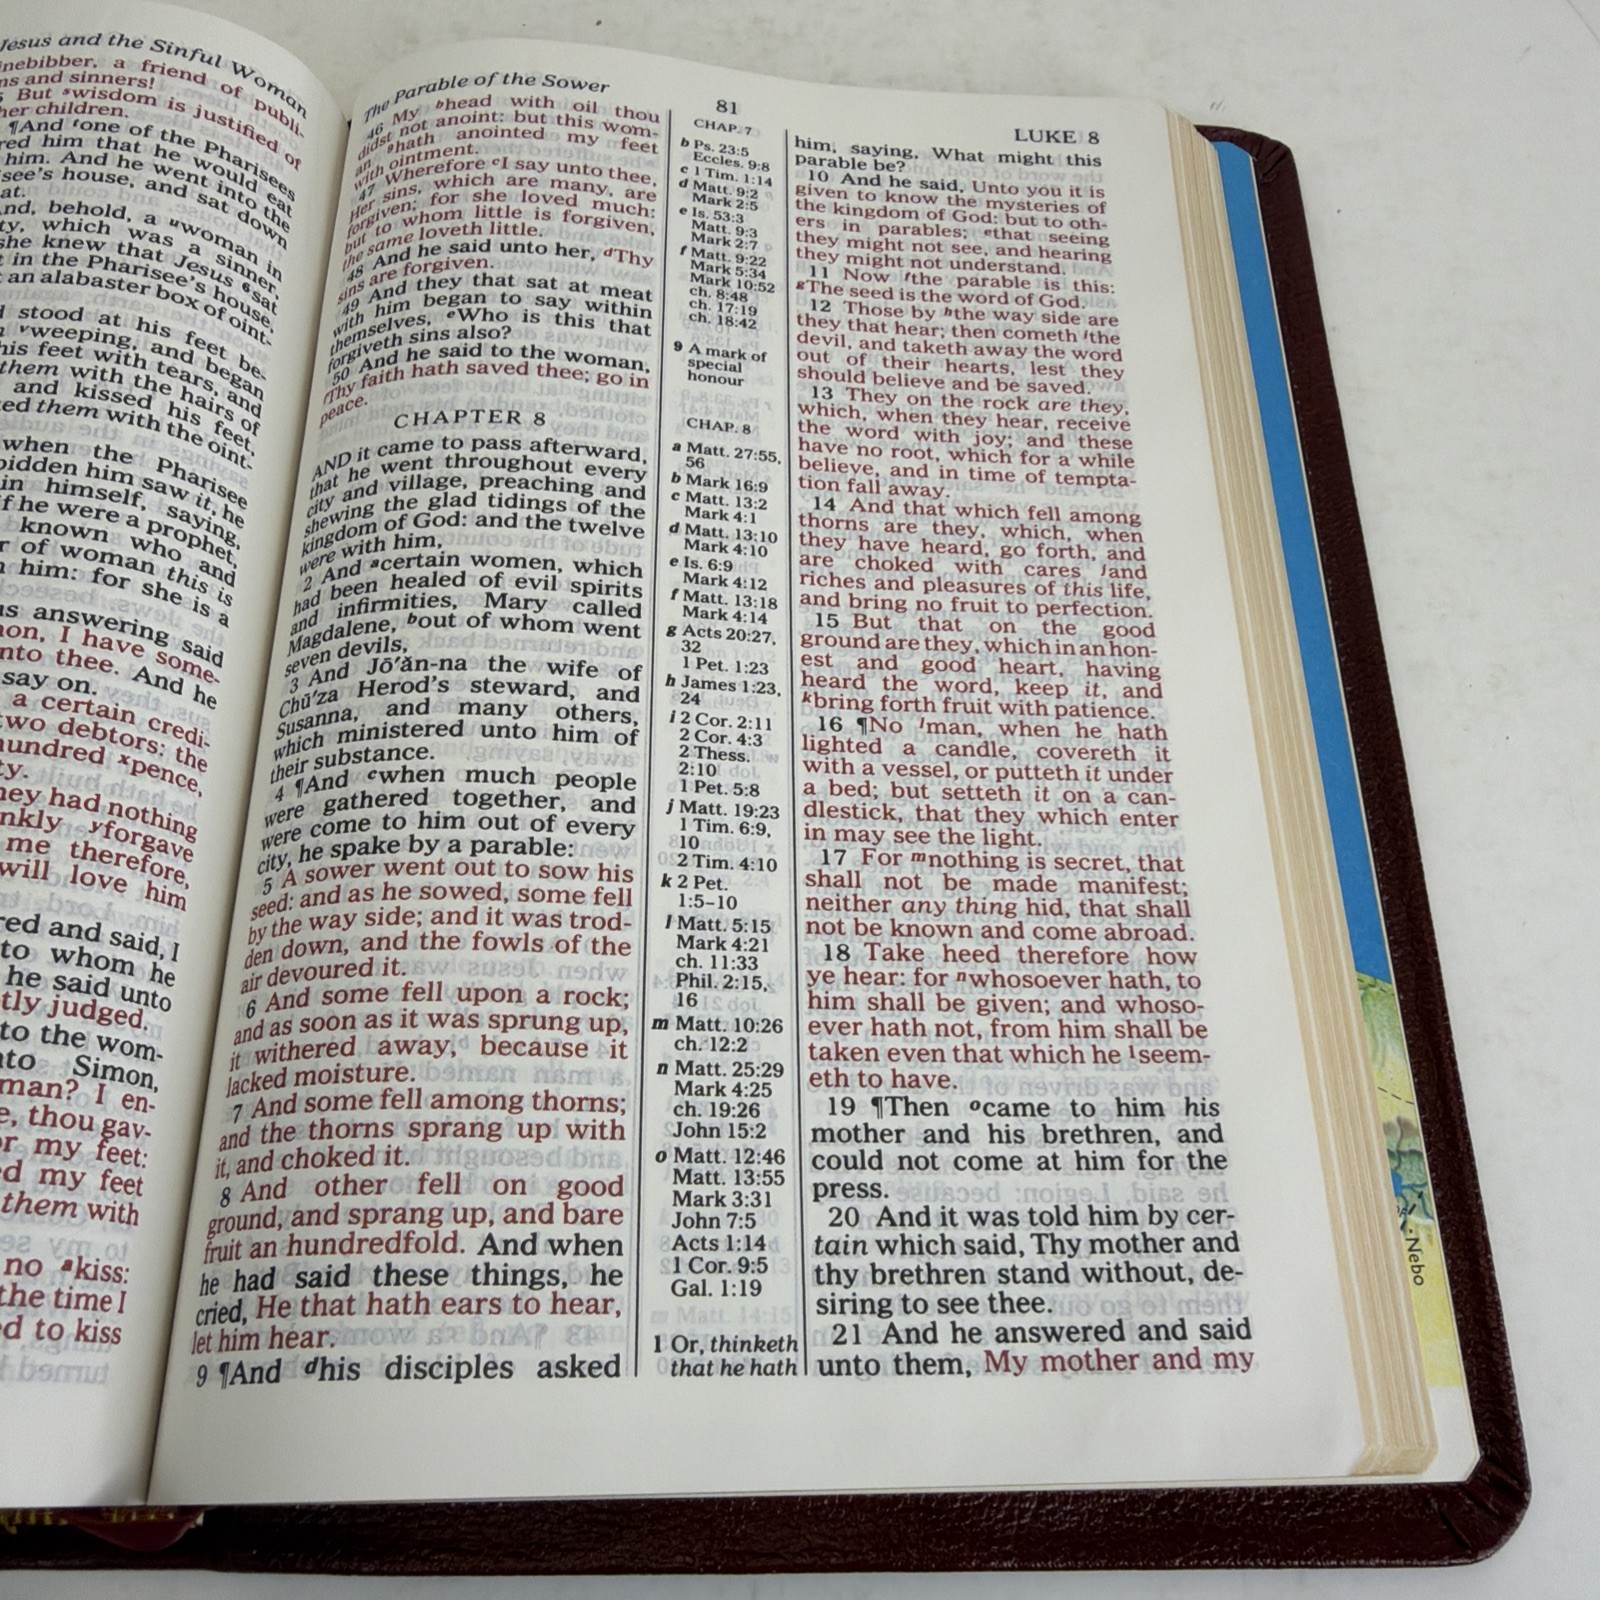 Jesus and the Sinful Woman
nebibber, a friend of publi-
ns and sinners!
5 But swisdom is justified of
her children.
¶And tone of the Pharisees
red him that he would eat
him. And he went into the
see's house, and sat down
at.
nd, behold, a uwoman in
ty, which was a sinner,
she knew that Jesus 6sat
t in the Pharisee's house,
an alabaster box of oint-
d stood at his feet be-
vweeping, and began
his feet with tears, and
them with the hairs of
and kissed his feet,
ed them with the oint-
when the Pharisee
bidden him saw it, he
in himself, saying,
f he were a prophet,
known who and
r of woman this is
him: for she is a
us answering said
non, I have some-
nto thee. And he
say on.
a certain credi-
two debtors: the
hundred xpence,
ty.
hey had nothing
nkly yforgave
me therefore,
will love him
red and said, I
to whom he
he said unto
tly judged.
to the wom-
nto Simon,
man? I en-
e, thou gav-
or my feet:
ed my feet
them with
no akiss:
the time I
ed to kiss
The Parable of the Sower
81
LUKE 8
46 My bhead with oil thou
didst not anoint: but this wom-
an 9hath anointed my feet
with ointment.
47 Wherefore cI say unto thee,
Her sins, which are many, are
forgiven; for she loved much:
but to whom little is forgiven,
the same loveth little.
48 And he said unto her, dThy
sins are forgiven.
49 And they that sat at meat
with him began to say within
themselves, eWho is this that
forgiveth sins also?
50 And he said to the woman,
fThy faith hath saved thee; go in
peace.
CHAPTER 8
AND it came to pass afterward,
that he went throughout every
city and village, preaching and
shewing the glad tidings of the
kingdom of God: and the twelve
were with him,
2 And acertain women, which
had been healed of evil spirits
and infirmities, Mary called
Magdalene, bout of whom went
seven devils,
3 And Jō'ăn-na the wife of
Chū'za Herod's steward, and
Susanna, and many others,
which ministered unto him of
their substance.
4 ¶And cwhen much people
were gathered together, and
were come to him out of every
city, he spake by a parable:
5 A sower went out to sow his
seed: and as he sowed, some fell
by the way side; and it was trod-
den down, and the fowls of the
air devoured it.
6 And some fell upon a rock;
and as soon as it was sprung up,
it withered away, because it
lacked moisture.
7 And some fell among thorns;
and the thorns sprang up with
it, and choked it.
8 And other fell on good
ground, and sprang up, and bare
fruit an hundredfold. And when
he had said these things, he
cried, He that hath ears to hear,
let him hear.
9 ¶And dhis disciples asked
CHAP. 7
b Ps. 23:5
Eccles. 9:8
c 1 Tim. 1:14
d Matt. 9:2
Mark 2:5
e Is. 53:3
Matt. 9:3
Mark 2:7
f Matt. 9:22
Mark 5:34
Mark 10:52
ch. 8:48
ch. 17:19
ch. 18:42
9 A mark of
special
honour
CHAP. 8
a Matt. 27:55,
56
b Mark 16:9
c Matt. 13:2
Mark 4:1
d Matt. 13:10
Mark 4:10
e Is. 6:9
Mark 4:12
f Matt. 13:18
Mark 4:14
g Acts 20:27,
32
1 Pet. 1:23
h James 1:23,
24
i 2 Cor. 2:11
2 Cor. 4:3
2 Thess.
2:10
1 Pet. 5:8
j Matt. 19:23
1 Tim. 6:9,
10
2 Tim. 4:10
k 2 Pet.
1:5-10
l Matt. 5:15
Mark 4:21
ch. 11:33
Phil. 2:15,
16
m Matt. 10:26
ch. 12:2
n Matt. 25:29
Mark 4:25
ch. 19:26
John 15:2
o Matt. 12:46
Matt. 13:55
Mark 3:31
John 7:5
Acts 1:14
1 Cor. 9:5
Gal. 1:19
1 Or, thinketh
that he hath
him, saying, What might this
parable be?
10 And he said, Unto you it is
given to know the mysteries of
the kingdom of God: but to oth-
ers in parables; ethat seeing
they might not see, and hearing
they might not understand.
11 Now fthe parable is this:
gThe seed is the word of God.
12 Those by hthe way side are
they that hear; then cometh ithe
devil, and taketh away the word
out of their hearts, lest they
should believe and be saved.
13 They on the rock are they,
which, when they hear, receive
the word with joy; and these
have no root, which for a while
believe, and in time of tempta-
tion fall away.
14 And that which fell among
thorns are they, which, when
they have heard, go forth, and
are choked with cares jand
riches and pleasures of this life,
and bring no fruit to perfection.
15 But that on the good
ground are they, which in an hon-
est and good heart, having
heard the word, keep it, and
kbring forth fruit with patience.
16 ¶No lman, when he hath
lighted a candle, covereth it
with a vessel, or putteth it under
a bed; but setteth it on a can-
dlestick, that they which enter
in may see the light.
17 For mnothing is secret, that
shall not be made manifest;
neither any thing hid, that shall
not be known and come abroad.
18 Take heed therefore how
ye hear: for nwhosoever hath, to
him shall be given; and whoso-
ever hath not, from him shall be
taken even that which he 1seem-
eth to have.
19 ¶Then ocame to him his
mother and his brethren, and
could not come at him for the
press.
20 And it was told him by cer-
tain which said, Thy mother and
thy brethren stand without, de-
siring to see thee.
21 And he answered and said
unto them, My mother and my
Nebo